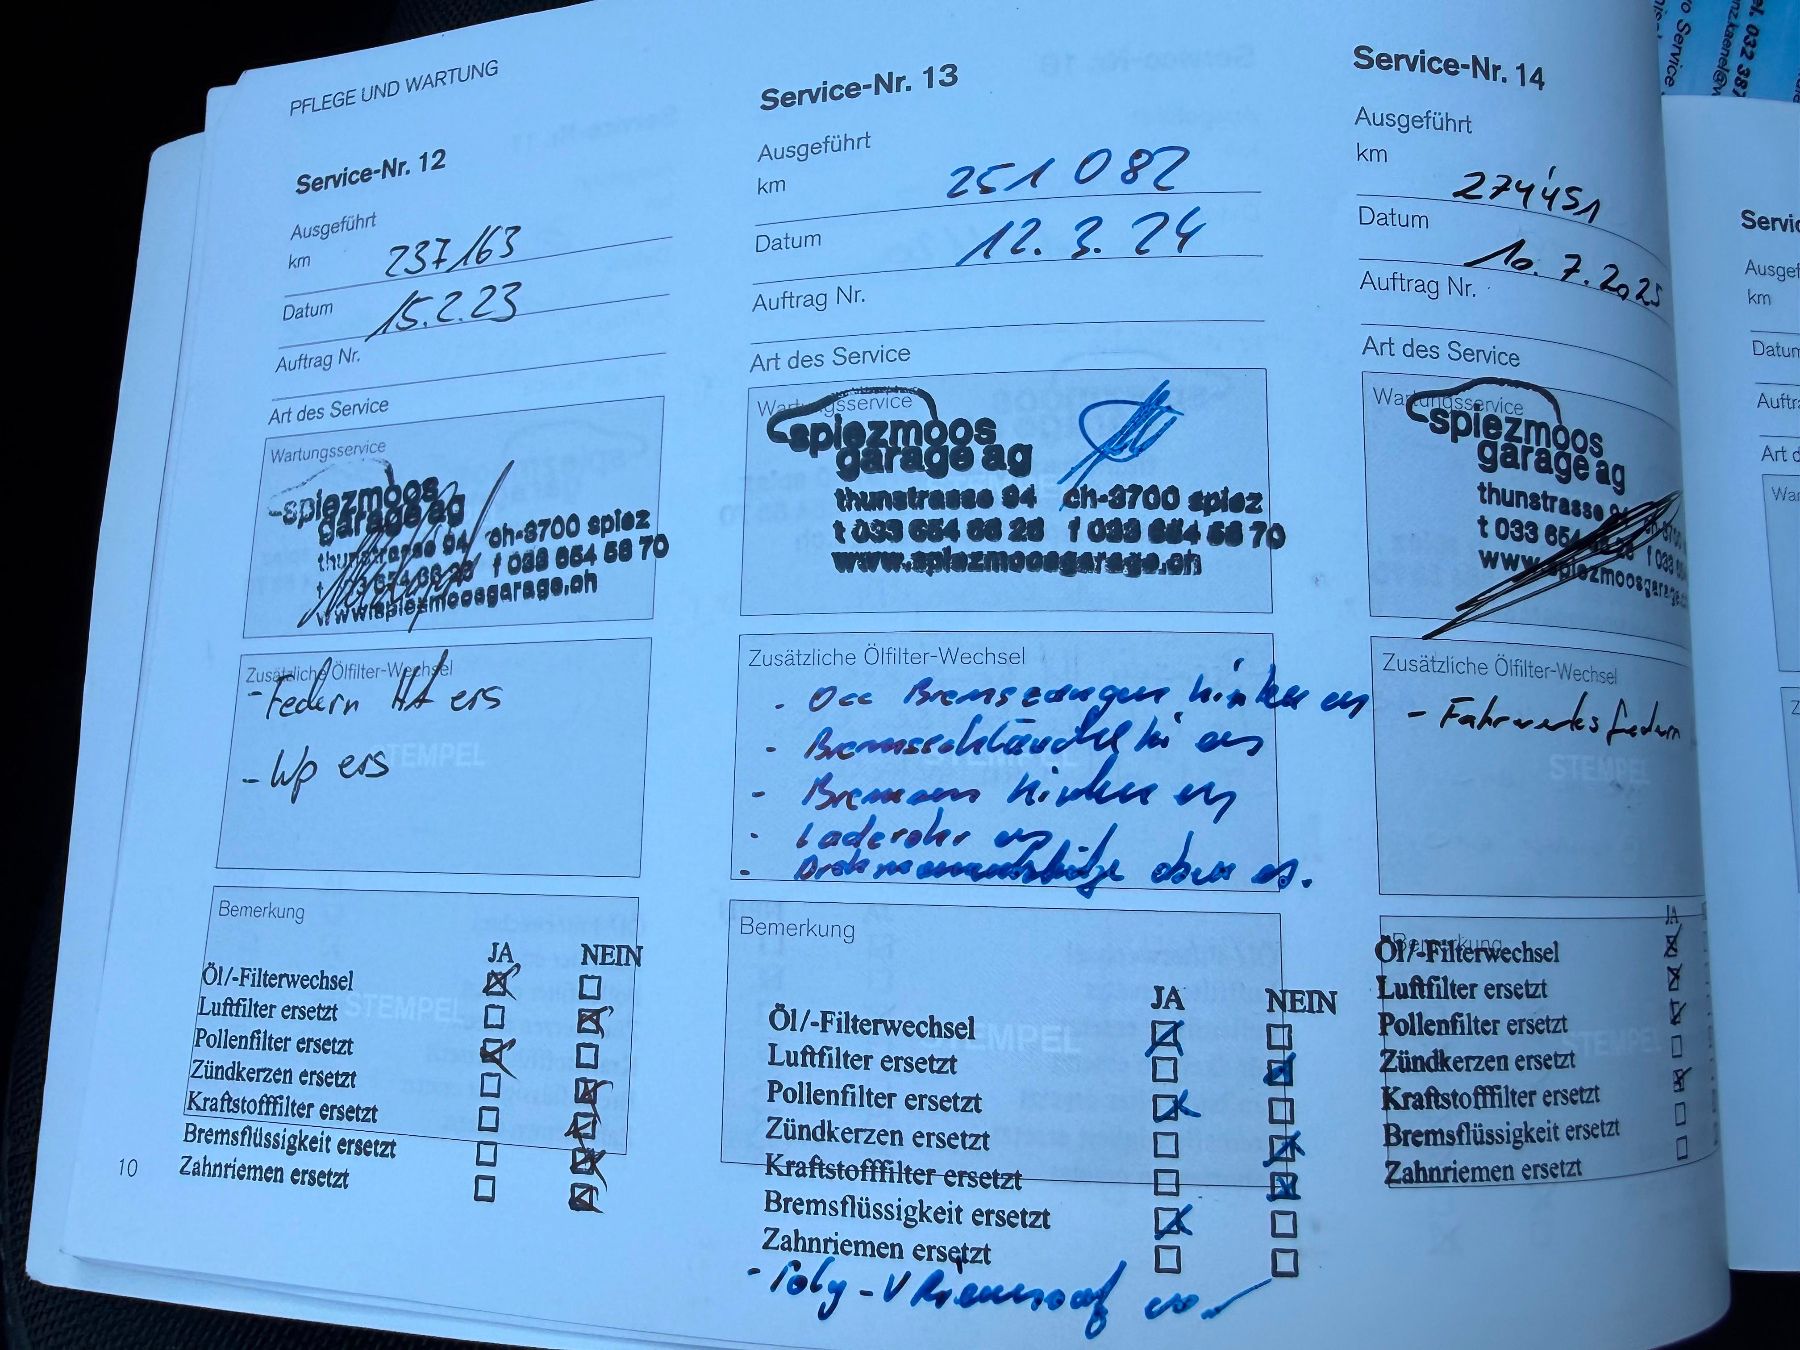 PFLEGE UND WARTUNG
Service-Nr. 12
Ausgeführt
km 237163
Datum 15.2.23
Auftrag Nr.
Art des Service
Wartungsservice
spiezmoos
garage ag
thunstrasse 94 ch-3700 spiez
f 033 654 56 70
www.spiezmoosgarage.ch
Zusätzliche Ölfilter-Wechsel
- Federn HA ers
- Wp ers
STEMPEL
Bemerkung
JA NEIN
Öl/-Filterwechsel
Luftfilter ersetzt
STEMPEL
Pollenfilter ersetzt
Zündkerzen ersetzt
Kraftstofffilter ersetzt
Bremsflüssigkeit ersetzt
Zahnriemen ersetzt
10
Service-Nr. 13
Ausgeführt
km 251 082
Datum 12.3.24
Auftrag Nr.
Art des Service
Wartungsservice
spiezmoos
garage ag
thunstrasse 94 ch-3700 spiez
t 033 654 66 28 f 033 654 56 70
www.spiezmoosgarage.ch
Zusätzliche Ölfilter-Wechsel
- Bremszangen hinten
- Bremsschläuche hi
- hinten
- Laderohr
- Drehmomentstütze oben
STEMPEL
Bemerkung
JA NEIN
Öl/-Filterwechsel
STEMPEL
Luftfilter ersetzt
Pollenfilter ersetzt
Zündkerzen ersetzt
Kraftstofffilter ersetzt
Bremsflüssigkeit ersetzt
Zahnriemen ersetzt
- Poly-V Riemen
Service-Nr. 14
Ausgeführt
km 274'451
Datum 10.7.2025
Auftrag Nr.
Art des Service
Wartungsservice
spiezmoos
garage ag
thunstrasse
t 033 654
www.spiezmoosgarage
Zusätzliche Ölfilter-Wechsel
- Fahrwerksfedern
STEMPEL
JA
Bemerkung
Öl/-Filterwechsel
Luftfilter ersetzt
Pollenfilter ersetzt
STEMPEL
Zündkerzen ersetzt
Kraftstofffilter ersetzt
Bremsflüssigkeit ersetzt
Zahnriemen ersetzt
km